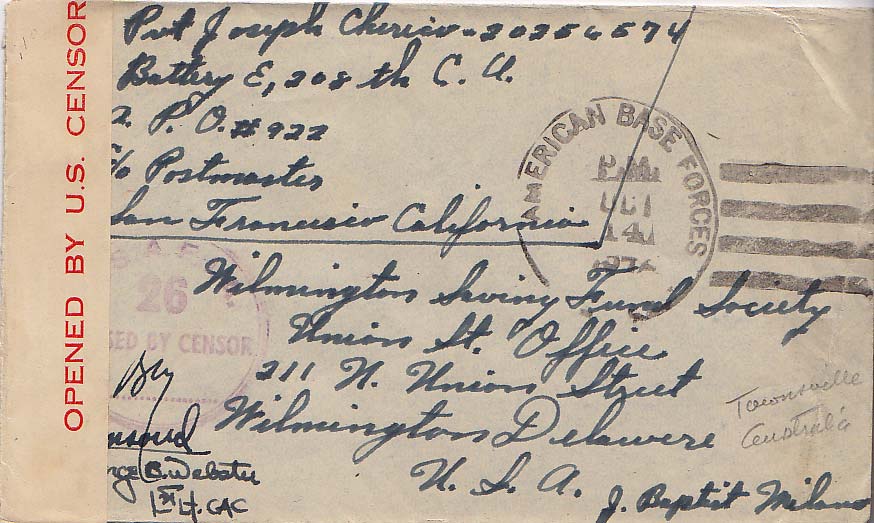 OPENED BY U.S. CENSOR
Pvt Joseph Cherico - 20256574
Battery E, 208 th C. A.
A. P. O. # 922
c/o Postmaster
San Francisco California
AMERICAN BASE FORCES
P.M.
OCT
14
26
SED BY CENSOR
Wilmington Saving Fund Society
Union St. Office
211 N. Union Street
Wilmington Delaware
U. S. A.
J. Baptist Milano
By
B. Webster
1st Lt. CAC
Townsville
Australia